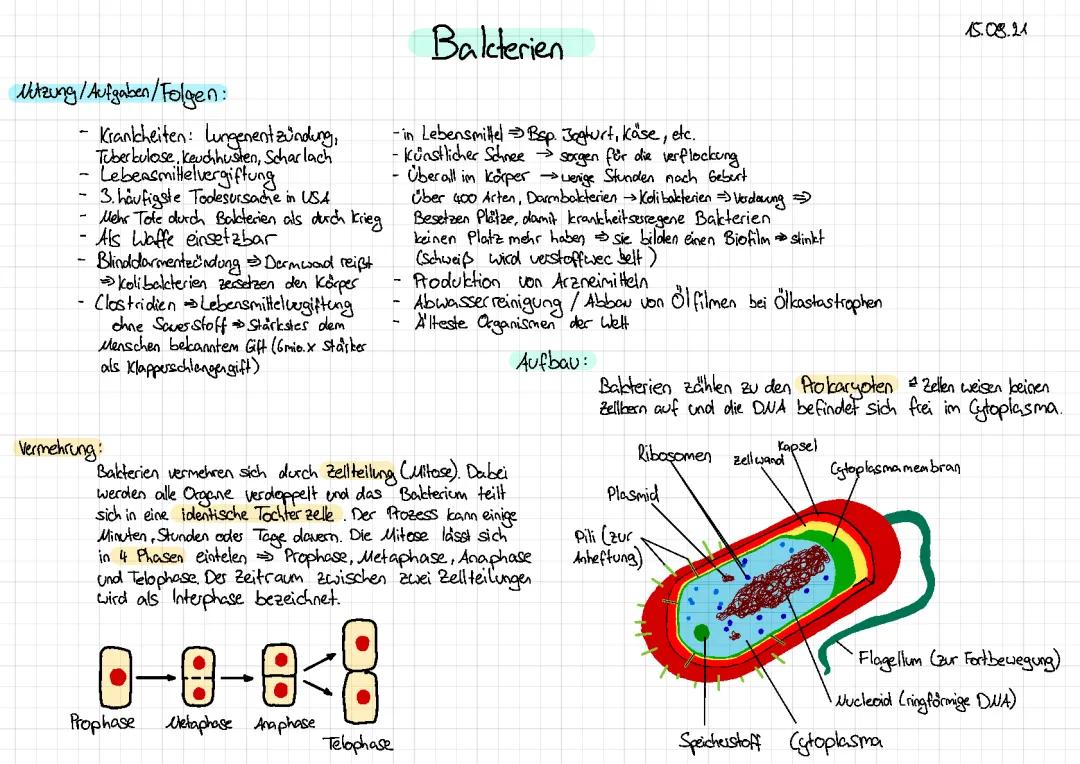 Bakterien
15.08.21
Nutzung/Aufgaben/Folgen:
- Krankheiten: Lungenentzündung,
Tuberkulose, Keuchhusten, Scharlach
- Lebensmittelvergiftung
- 3. häufigste Todesursache in USA
- Mehr Tote durch Bakterien als durch Krieg
- Als Waffe einsetzbar
- Blinddarmentzündung ⇒ Darmwand reißt
⇒ Kolibakterien zersetzen den Körper
- Clostridien ⇒ Lebensmittelvergiftung
ohne Sauerstoff ⇒ Stärkstes dem
Menschen bekanntem Gift (6mio.x stärker
als Klapperschlangengift)
- in Lebensmittel ⇒ Bsp. Joghurt, Käse, etc.
- Künstlicher Schnee → sorgen für die verflockung
- Überall im Körper → wenige Stunden nach Geburt
Über 400 Arten, Darmbakterien → Kolibakterien ⇒ Verdauung ⇒
Besetzen Plätze, damit krankheitseregene Bakterien
keinen Platz mehr haben ⇒ sie bilden einen Biofilm ⇒ stinkt
(Schweiß wird verstoffwecselt)
- Produktion von Arzneimitteln
- Abwasserreinigung / Abbau von Ölfilmen bei Ölkastastrophen
- Älteste Organismen der Welt
Aufbau:
Bakterien zählen zu den Prokaryoten ≙ Zellen weisen keinen
Zellkern auf und die DNA befindet sich frei im Cytoplasma.
Vermehrung:
Bakterien vermehren sich durch Zellteilung (Mitose). Dabei
werden alle Organe verdoppelt und das Bakterium teilt
sich in eine identische Tochterzelle. Der Prozess kann einige
Minuten, Stunden oder Tage dauern. Die Mitose lässt sich
in 4 Phasen eintelen ⇒ Prophase, Metaphase, Anaphase
und Telophase. Der Zeitraum zwischen zwei Zellteilungen
wird als Interphase bezeichnet.
Prophase
Metaphase
Anaphase
Telophase
Ribosomen
Zellwand
Kapsel
Cytoplasmamembran
Plasmid
Pili (zur
Anheftung)
Flagellum (zur Fortbewegung)
Nucleoid (ringförmige DNA)
Speicherstoff
Cytoplasma